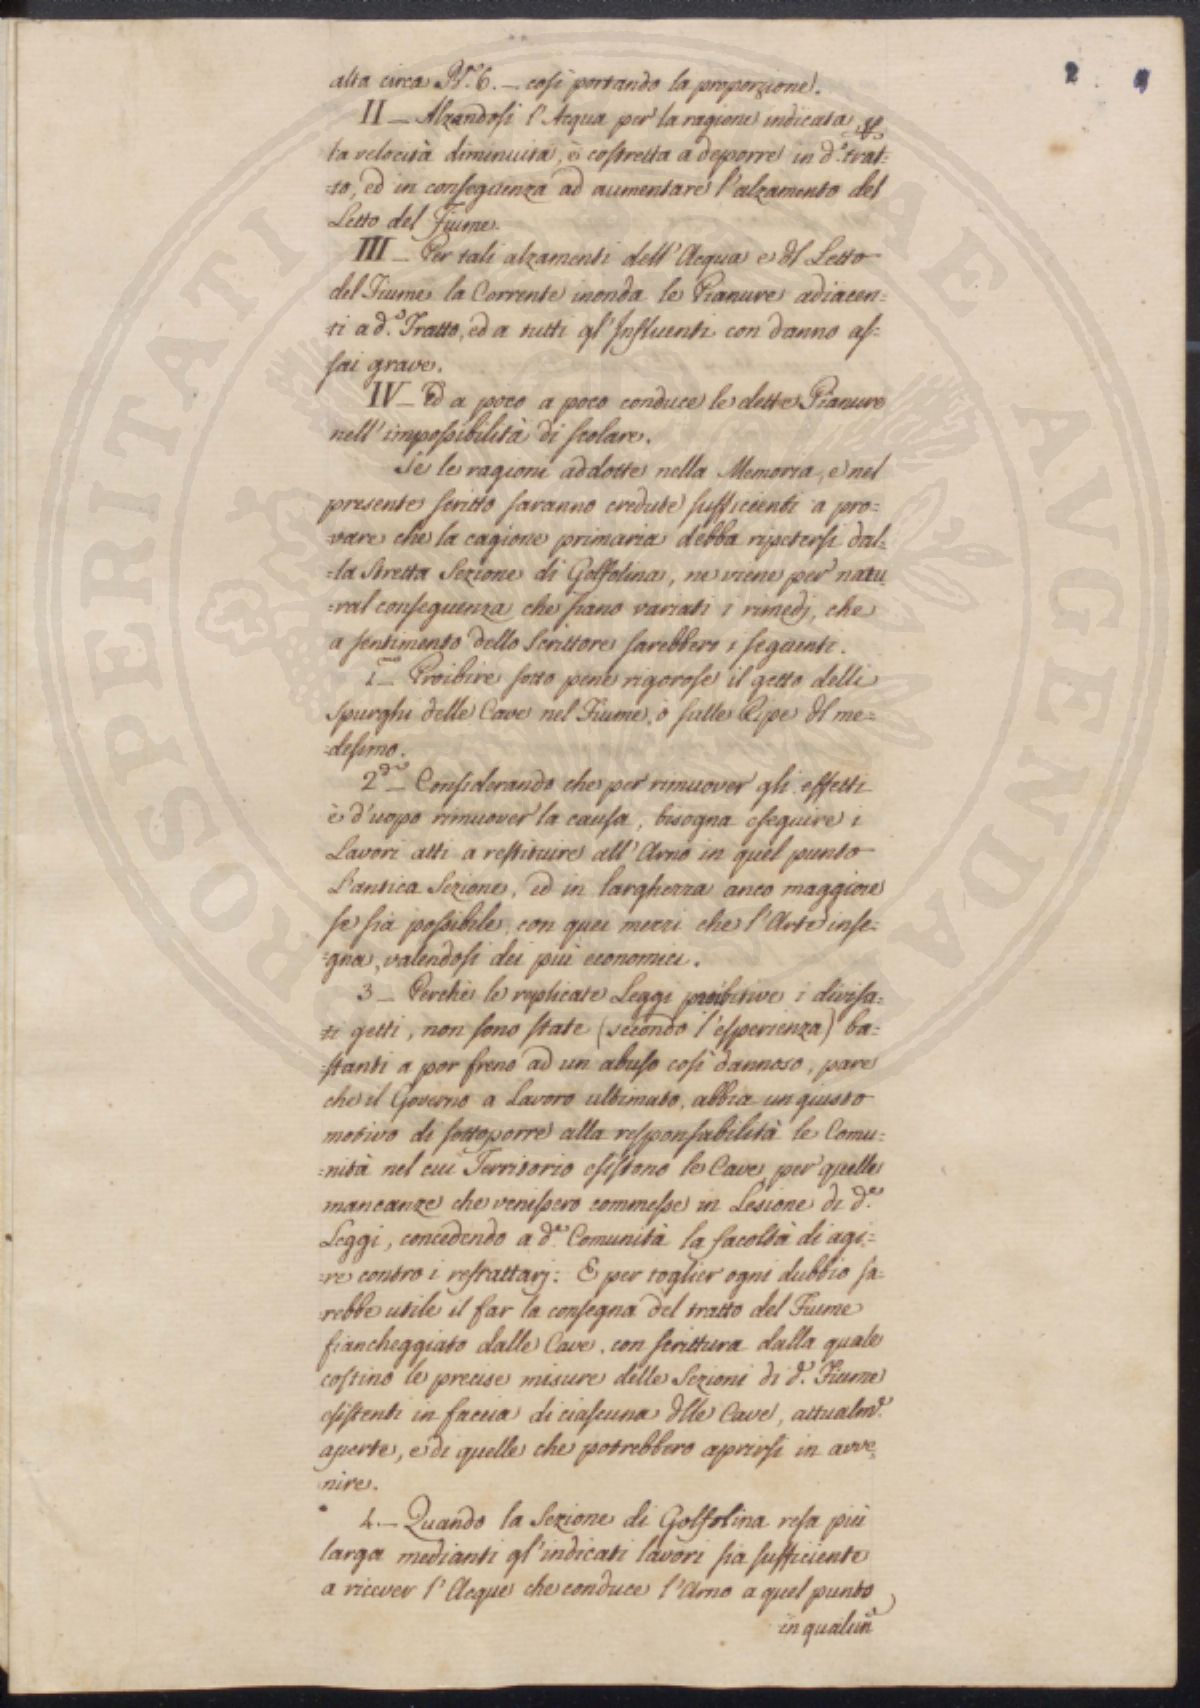 2
alta circa B.ª 6. — così portando la proporzione.
II — Alzandosi l'Acqua per la ragione indicata, e
la velocità diminuita, è costretta a deporre in d.º trat=
=to, ed in conseguenza ad aumentare l'alzamento del
Letto del Fiume.
III — Per tali alzamenti dell'Acqua e dl Letto
del Fiume la Corrente inonda le Pianure adiacen=
=ti a d.º Tratto, ed a tutti gl'Influenti con danno as=
=sai grave.
IV — Ed a poco a poco conduce le dette Pianure
nell'impossibilità di scolare.
Se le ragioni addotte nella Memoria, e nel
presente scritto saranno credute sufficienti a pro=
=vare che la cagione primaria debba ripetersi dal=
=la stretta Sezione di Golfolina, ne viene per natu
=ral conseguenza che siano variati i rimedj, che
a sentimento dello Scrittore sarebbero i seguenti.
1.mo — Proibire sotto pene rigorose il getto delli
Spurghi delle Cave nel Fiume, o sulle Ripe dl me=
=desimo.
2.do — Considerando che per rimuover gli effetti
è d'uopo rimuover la causa, bisogna eseguire i
Lavori atti a restituire all'Arno in quel punto
l'antica Sezione, ed in larghezza anco maggiore
se sia possibile, con quei mezzi che l'Arte inse=
=gna, valendosi dei più economici.
3 — Perchè le replicate Leggi proibitive i divisa=
=ti getti, non sono state (secondo l'esperienza) ba=
=stanti a por freno ad un abuso così dannoso, pare
che il Governo a Lavoro ultimato, abbia un giusto
motivo di sottoporre alla responsabilità le Comu=
=nità nel cui Territorio esistono le Cave, per quelle
mancanze che venissero commesse in Lesione di d.e
Leggi, concedendo a d.e Comunità la facoltà di agi=
=re contro i refrattarj: E per toglier ogni dubbio sa=
rebbe utile il far la consegna del tratto del Fiume
fiancheggiato dalle Cave, con scrittura dalla quale
costino le precise misure delle Sezioni di d.º Fiume
esistenti in faccia di ciascuna dlle Cave, attualm.e
aperte, e di quelle che potrebbero aprirsi in avve=
nire.
4. — Quando la Sezione di Golfolina resa più
larga medianti gl'indicati lavori sia sufficiente
a ricever l'Acque che conduce l'Arno a quel punto
in qualun
PROSPERITATI PUBLICAE AUGENDAE